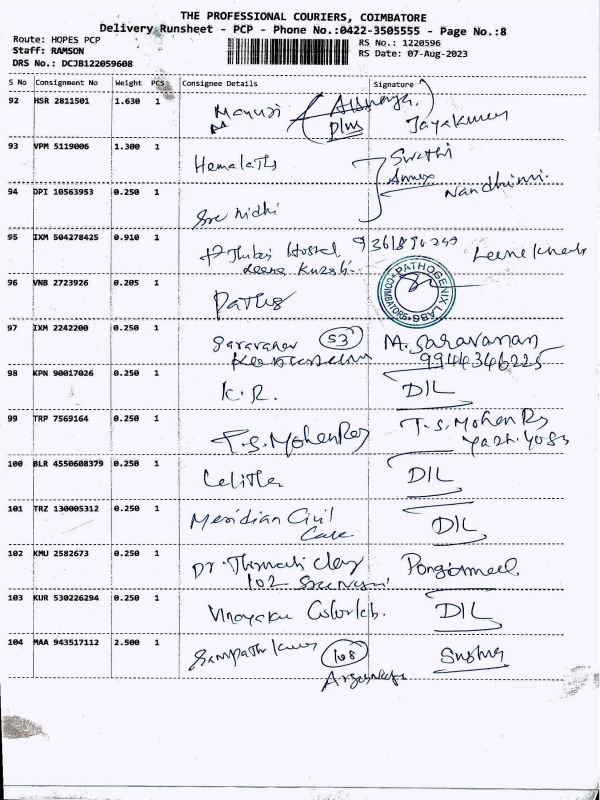 THE PROFESSIONAL COURIERS, COIMBATORE
Delivery Runsheet - PCP - Phone No.:0422-3505555 - Page No.:8
Route: HOPES PCP
RS No.: 1220596
Staff: RAMSON
RS Date: 07-Aug-2023
DRS No.: DCJB122059608
S No Consignment No Weight PCS Consignee Details Signature
92 HSR 2811501 1.630 1 Plus Jayakumar
93 VPM 5119006 1.300 1 Hemalatha Swathi
Annex Nandhini.
94 DPI 10563953 0.250 1 Sre nidhi
95 IXM 504278425 0.910 1 Hostel
Leena
96 VNB 2723926 0.205 1 PATHOGENIX LABS COIMBATORE
97 IXM 2242200 0.250 1 Saravanan 53 M. Saravanan
9944346225
98 KPN 90017026 0.250 1 K.R. DIL
99 TRP 7569164 0.250 1 T.S. Mohan Raj T.S. Mohan Raj
100 BLR 4550608379 0.250 1 DIL
101 TRZ 130005312 0.250 1 Meridian Civil DIL
Care
102 KMU 2582673 0.250 1 Dr
102
103 KUR 530226294 0.250 1 Vinayaka Colorlab. DIL
104 MAA 943517112 2.500 1 Sampath kumar 108 Sushma